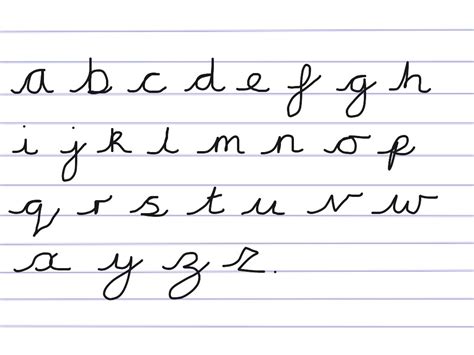 a b c d e f g h
i j k l m n o p
q r s t u v w
x y z z.